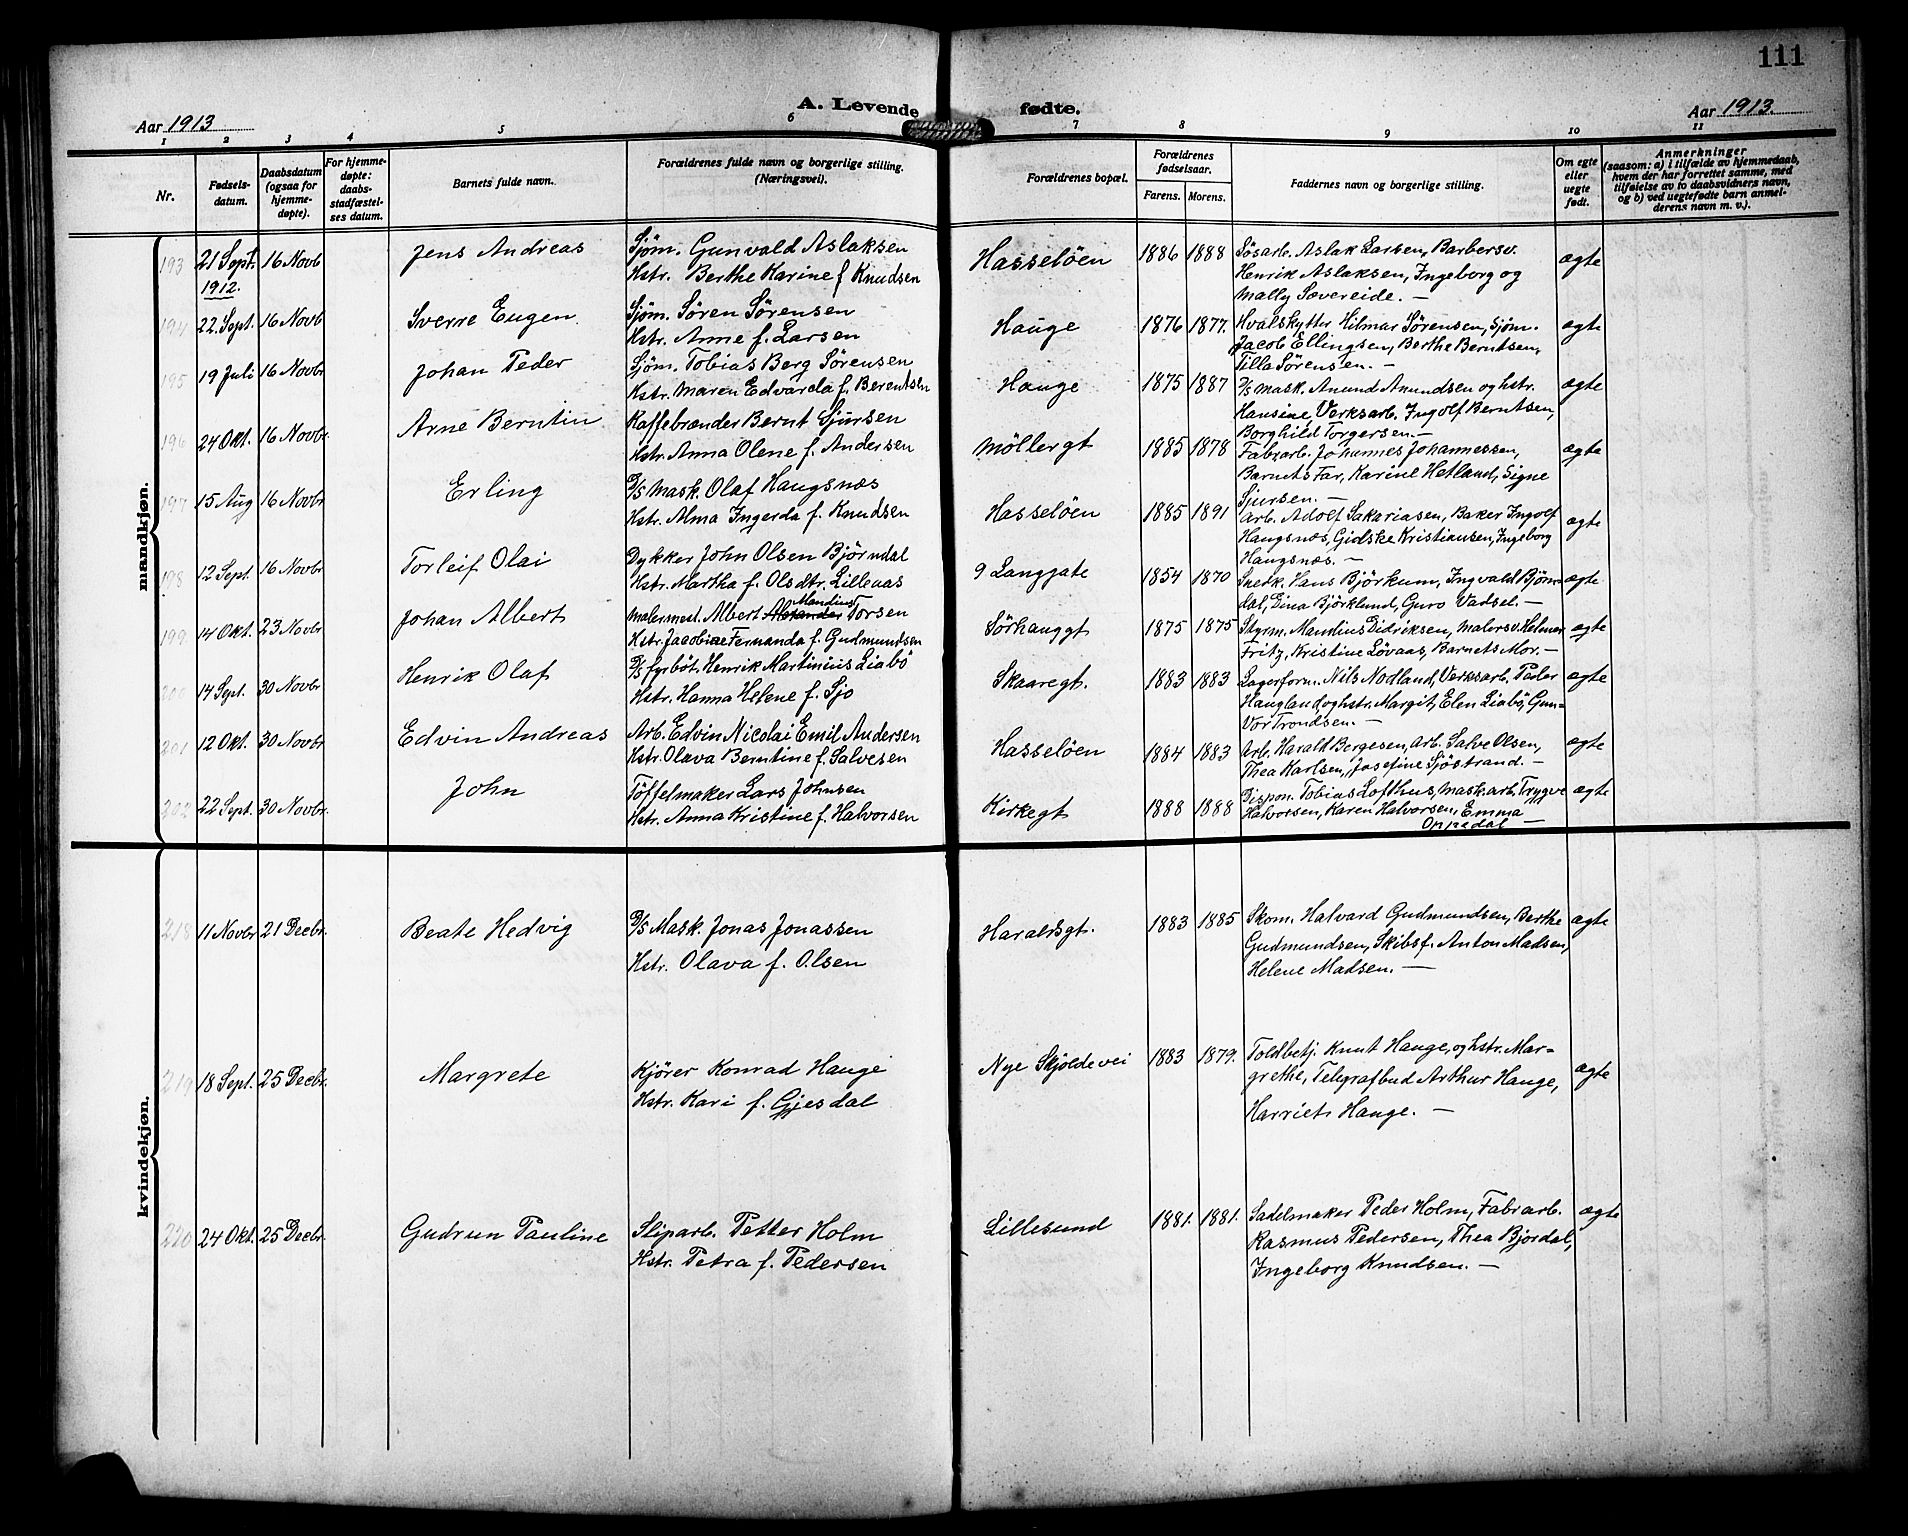 111
A. Levende fødte.
Aar 1913
Aar 1913.
1 2 3 4 5 6 7 8 9 10 11
Nr.
Fødsels-
datum.
Daabsdatum
(ogsaa for
hjemme-
døpte).
For hjemme-
døpte:
daabs-
stadfæstel-
ses datum.
Barnets fulde navn.
Forældrenes fulde navn og borgerlige stilling.
(Næringsvei).
Forældrenes bopæl.
Forældrenes
fødselsaar.
Farens. Morens.
Faddernes navn og borgerlige stilling.
Om egte
eller
uegte
født.
Anmerkninger
(saasom: a) i tilfælde av hjemmedaab,
hvem der har forrettet samme, med
tilføielse av to daabsvidners navn,
og b) ved uegtefødte barn anmel-
derens navn m. v.).
mandkjøn.
193 21 Sept. 16 Novb Jens Andreas Sjøm. Gunvald Aslaksen Hasseløen 1886 1888 Løsarb. Aslak Larsen, Barbersv. ægte
1912. Hstr. Berthe Karine f Knudsen Henrik Aslaksen, Ingeborg og
Mally Sævereide. —
194 22. Sept. 16 Novb Sverre Eugen Sjøm. Søren Sørensen Hauge 1876 1877. Hvalskytter Hilmar Sørensen, Sjøm. ægte
Hstr. Anne f. Larsen Jacob Ellingsen, Berthe Berntsen,
Tilla Sørensen. —
195 19 Juli 16 Novbr Johan Peder Sjøm. Tobias Berg Sørensen Hauge 1875 1887 D/S mask. Anund Anundsen og hstr. ægte
Hstr. Maren Edvarda f. Berentsen Hansine, Verksarb. Ingolf Berntsen,
Borghild Torgersen. —
196 24 Okt. 16 Novbr. Arne Berntin Kaffebrænder Bernt Sjursen Møllergt 1885 1878 Fabrarb. Johannes Johannessen, ægte
Hstr. Anna Olene f. Andersen Barnets Far, Karine Hetland, Signe
Sjursen. —
197 15 Aug 16 Novbr Erling D/S Mask. Olaf Haugsnæs Hasseløen 1885 1891 Arb. Adolf Sakariasen, Baker Ingolf ægte
Hstr. Alma Ingerda f. Knudsen Haugsnæs, Gidske Kristiansen, Ingeborg
Haugsnæs. —
198 12 Sept. 16 Novbr Torleif Olai Dykker John Olsen Bjørndal 9 Langgate 1854 1870 Snedk. Hans Björkum, Ingvald Bjørn- ægte
Hstr. Martha f. Olsdtr. Lillevas dal, Eina Björklund, Guro Vadsel. —
199 14 Okt. 23 Novbr Johan Albert Malermest. Albert Alexander Mandius Torsen Sørhauggt 1875 1875 Styrm. Mandius Didriksen, Malersv. Helmer ægte
Hstr. Jacobine Fernanda f. Gudmundsen Fritz, Kristine Løvaas, Barnets Mor. —
200 14 Sept. 30 Novbr Henrik Olaf D/S fyrbøt. Henrik Martinius Liabø Skaaregt. 1883 1883 Lagerform. Nils Nodland, Verksarb. Peder ægte
Hstr. Hanna Helene f. Sjo Haugland og hstr. Margit, Elen Liabö, Gun-
vor Trondsen. —
201 12 Okt. 30 Novbr Edvin Andreas Arb. Edvin Nicolai Emil Andersen Hasseløen 1884 1883 Arb. Harald Bergesen, Arb. Salve Olsen, ægte
Hstr. Olava Berntine f. Salvesen Thea Karlsen, Josefine Sjøstrand. —
202 22 Sept. 30 Novbr. John Töffelmaker Lars Johnsen Kirkegt 1888 1888 Dispon. Tobias Lofthus, mask.arb. Trygve ægte
Hstr. Anna Kristine f. Halvorsen Halvorsen, Karen Halvorsen, Emma
Oppedal —
kvindekjøn.
218 11 Novbr 21 Decbr. Beate Hedvig D/S Mask. Jonas Jonassen Haraldsgt. 1883 1885 Skom. Halvard Gudmundsen, Berthe ægte
Hstr. Olava f. Olsen Gudmundsen, Skibsf. Anton Madsen,
Helene Madsen. —
219 18 Sept. 25 Decbr. Margrete Kjører Konrad Hauge Nye Skjoldevei 1883 1879. Toldbetj. Knut Hauge, og hstr. Mar-
Hstr. Kari f. Gjesdal grethe, Telegrafbud Arthur Hauge, ægte
Harriet Hauge. —
220 24 Okt. 25 Decbr. Gudrun Pauline Sliparb. Petter Holm Lillesund 1881. 1881. Sadelmaker Peder Holm, Fabrarb. ægte
Hstr. Petra f. Pedersen Rasmus Pedersen, Thea Bjørdal,
Ingeborg Knudsen. —